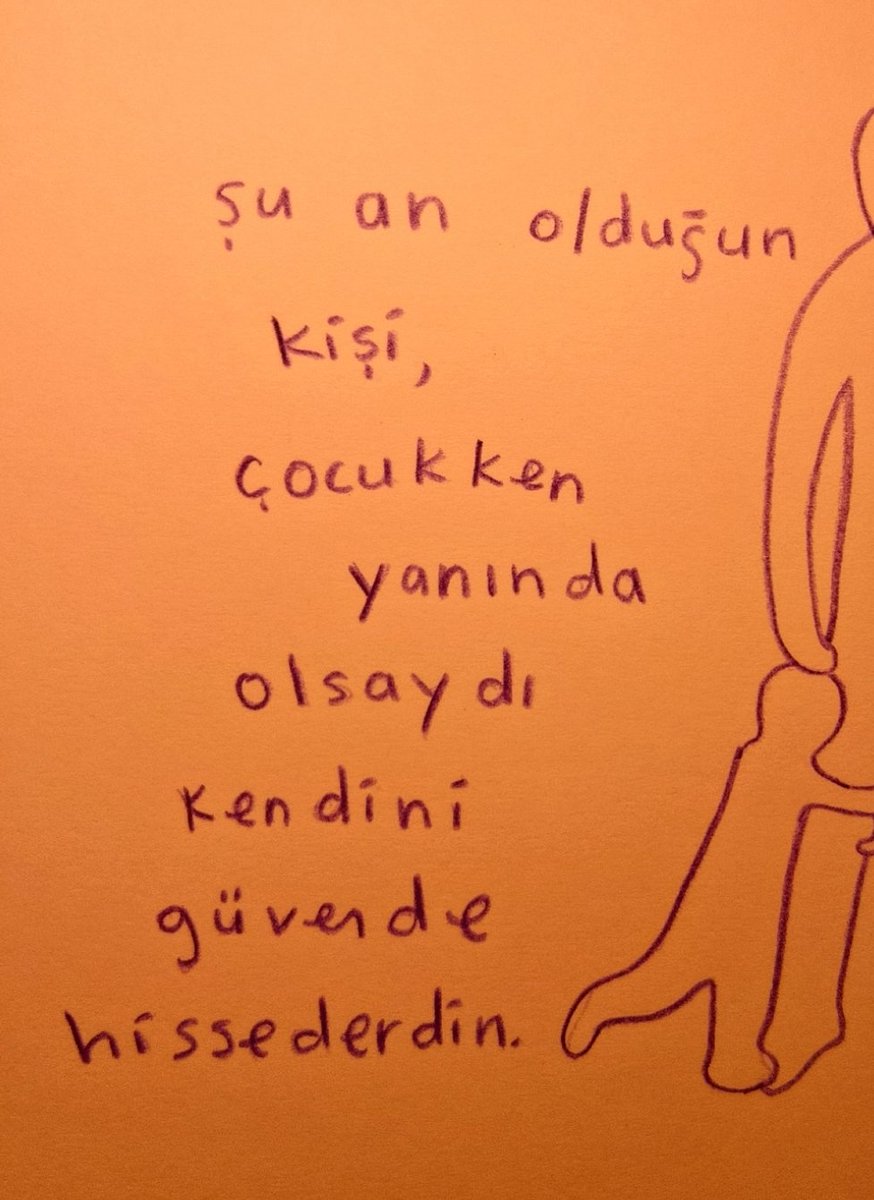 şu an olduğun
kişi,
çocukken
yanında
olsaydı
kendini
güvende
hissederdin.